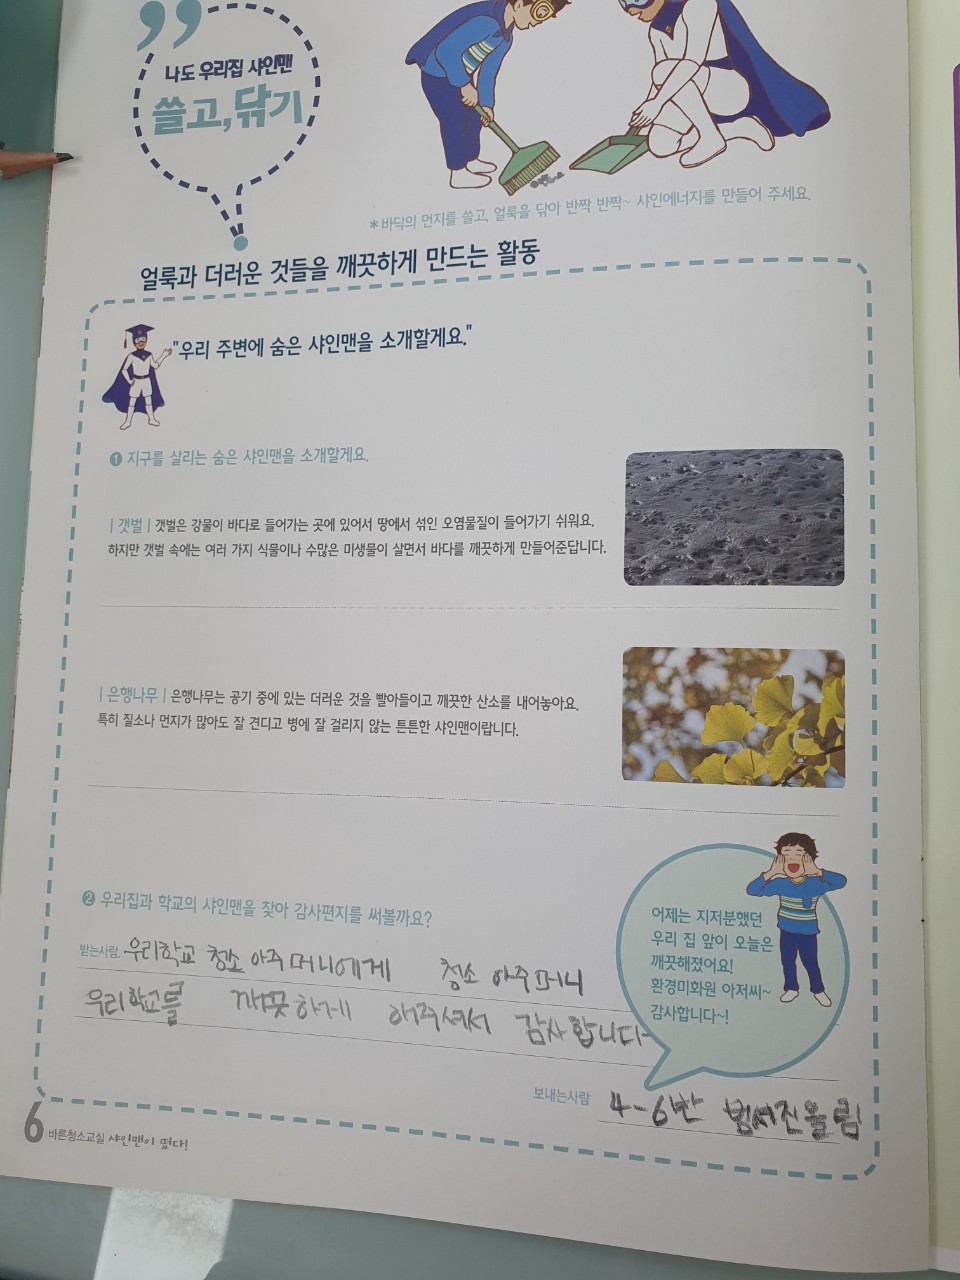 나도 우리집 샤인맨
쓸고, 닦기
*바닥의 먼지를 쓸고, 얼룩을 닦아 반짝 반짝~ 샤인에너지를 만들어 주세요.
얼룩과 더러운 것들을 깨끗하게 만드는 활동
"우리 주변에 숨은 샤인맨을 소개할게요."
❶ 지구를 살리는 숨은 샤인맨을 소개할게요.
| 갯벌 | 갯벌은 강물이 바다로 들어가는 곳에 있어서 땅에서 섞인 오염물질이 들어가기 쉬워요.
하지만 갯벌 속에는 여러 가지 식물이나 수많은 미생물이 살면서 바다를 깨끗하게 만들어준답니다.
| 은행나무 | 은행나무는 공기 중에 있는 더러운 것을 빨아들이고 깨끗한 산소를 내어놓아요.
특히 질소나 먼지가 많아도 잘 견디고 병에 잘 걸리지 않는 튼튼한 샤인맨이랍니다.
❷ 우리집과 학교의 샤인맨을 찾아 감사편지를 써볼까요?
받는사람. 우리학교 청소 아주머니에게 청소 아주머니
우리학교를 깨끗하게 해주셔서 감사합니다~
어제는 지저분했던
우리 집 앞이 오늘은
깨끗해졌어요!
환경미화원 아저씨~
감사합니다~!
보내는사람 4-6반 범서진올림
6 바른청소교실 샤인맨이 떴다!